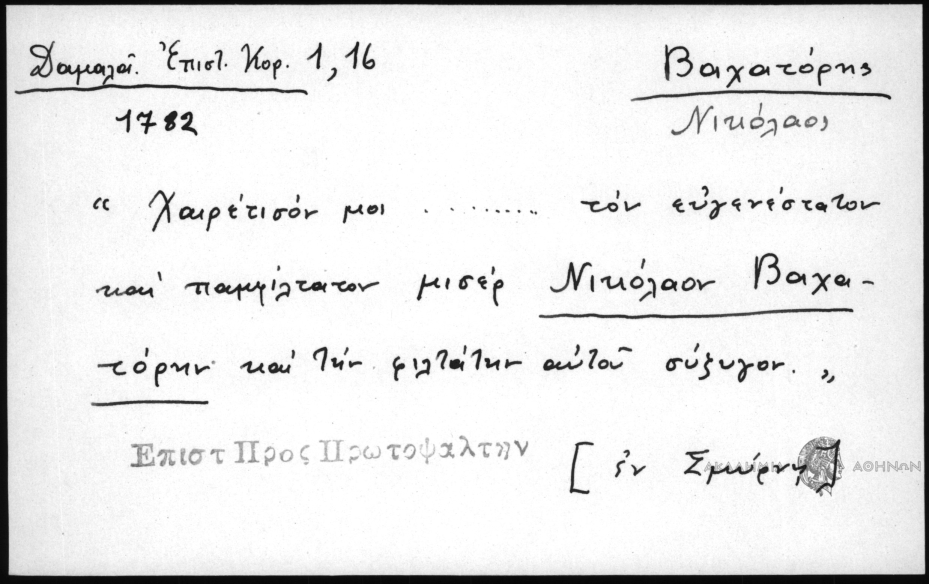 Δαμαλᾶ. Ἐπιστ. Κορ. 1, 16
Βαχατόρης
1782
Νικόλαος
“ Χαιρέτισόν μοι ......... τόν εὐγενέστατον
καί παμφίλτατον μισέρ Νικόλαον Βαχα-
τόρην καί τήν φιλτάτην αὐτοῦ σύζυγον. „
Επιστ Προς Πρωτοψαλτην
[ ἐν Σμύρνῃ ]
ΑΚΑΔΗΜΙΑ ΑΘΗΝΩΝ